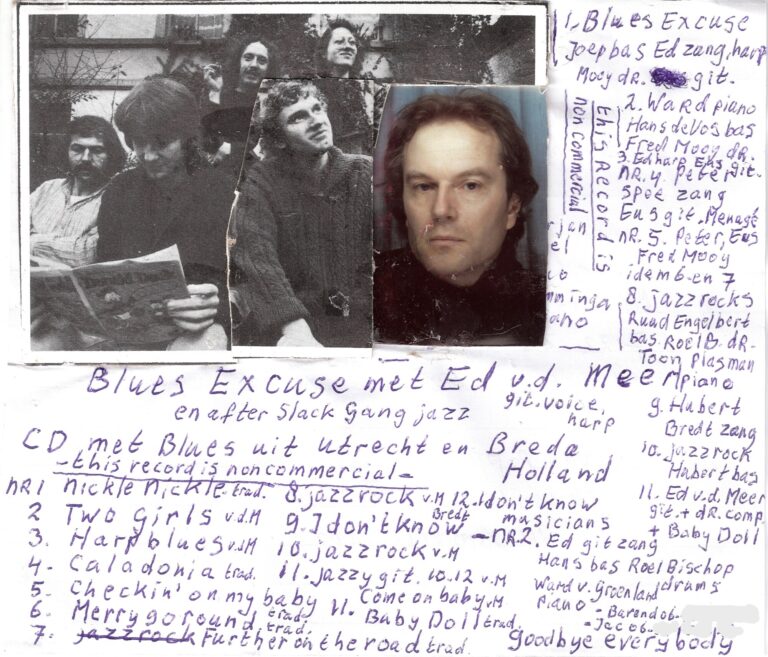 1. Blues Excuse
Joep bas Ed zang, harp
Mooy dR. git.
2. Ward piano
Hans de Vos bas
Fred Mooy dR.
3. Ed harp Eus git.
nR. 4. Peter
Spee zang
Eus git. Menage
nR. 5. Peter, Eus
Fred Mooy
idem 6 en 7
8. jazzrocks
Ruud Engelbert
bas Roel B. dR.
Toon Plasman
piano
9. Hubert
Bredt zang
10. jazzrock
Hubert bas
11. Ed v.d. Meer
git. + dR. comp.
+ Baby Doll
this Record is
non commercial
rjan
el
mminga
ano
Blues Excuse met Ed v.d. Meer
en after Slack Gang jazz
git. voice,
harp
CD met Blues uit Utrecht en Breda
Holland
- this record is non commercial -
nR1 Nickle Nickle trad.
2 Two girls v.d.M
3. Harpblues v.d.M
4. Caladonia trad.
5. Checkin' on my baby trad.
6. Merry go round trad.
7. jazzrock Further on the road trad.
8. jazzrock v.M
9. I don't know Bredt
10. jazzrock v.M
11. jazzy git. 10.12 v.M
Come on baby v.M
11. Baby Doll trad.
12. I don't know
musicians
- nR.2. Ed git zang
Hans bas Roel Bischop
drums
Ward v. Groenland
piano - Barend ob.
- Jacob
Goodbye everybody